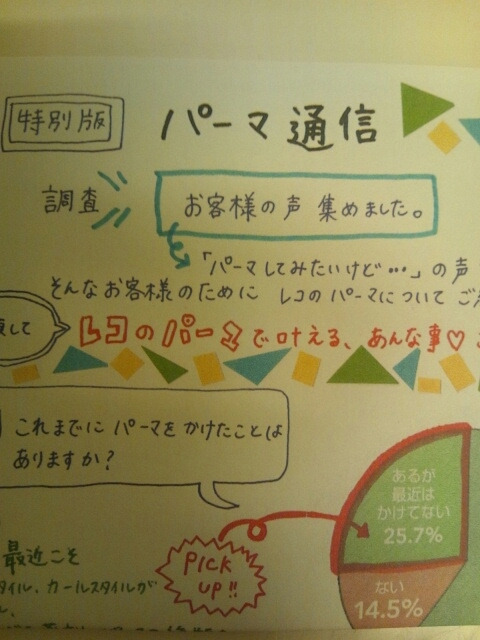 特別版
パーマ通信
調査
お客様の声 集めました。
「パーマしてみたいけど…」の声
そんなお客様のために レコのパーマについて ご
して
レコのパーマで叶える、あんな事♡
これまでに パーマを かけたことは
ありますか?
あるが
最近は
かけてない
25.7%
PICK
UP!!
最近こそ
タイル、カールスタイルが
ない
14.5%